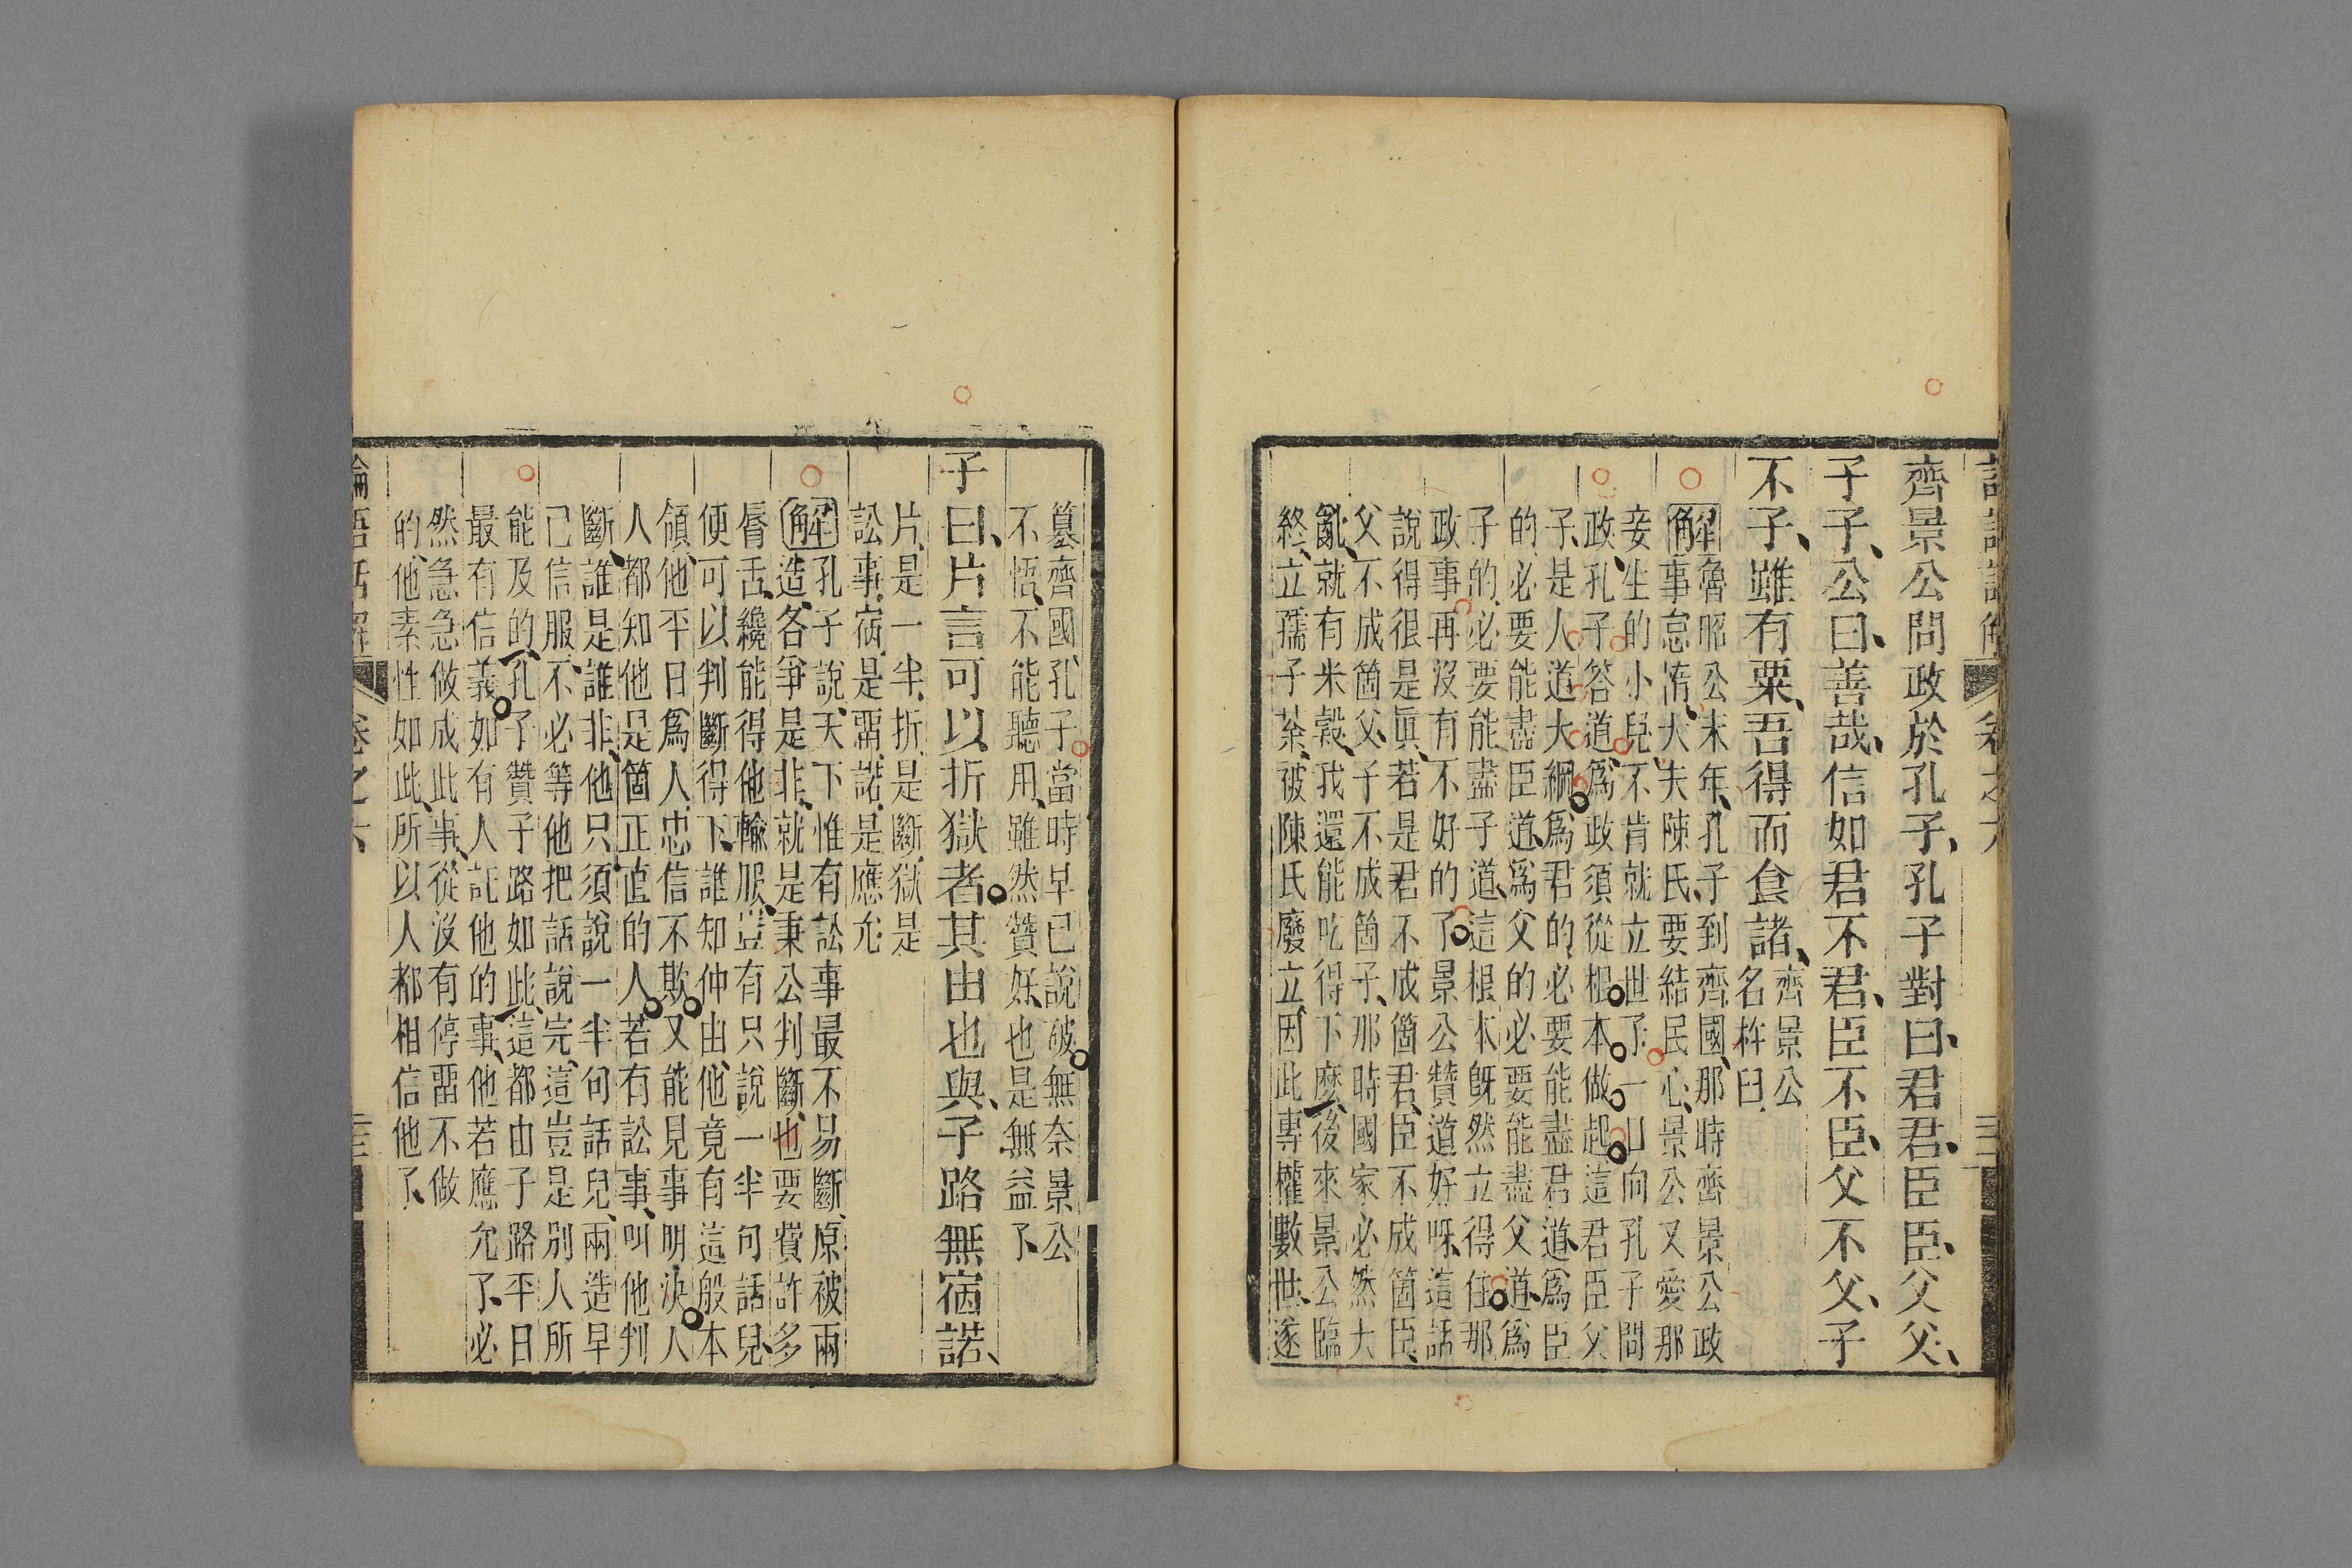 齊景公問政於孔子、孔子對曰、君君、臣臣、父父、
子子、公曰、善哉、信如君不君、臣不臣、父不父、子
不子、雖有粟、吾得而食諸、齊景公
名杵臼、
解魯昭公末年、孔子到齊國、那時齊景公政
事怠惰、大夫陳氏、要結民心、景公又愛那
妾生的小兒、不肯就立世了、一日向孔子問
政、孔子答道、爲政須從根本做起、這君臣父
子、是人道大綱、爲君的、必要能盡君道、爲臣
的、必要能盡臣道、爲父的、必要能盡父道、爲
子的、必要能盡子道、這根本旣然立得住、那
政事再沒有不好的了、景公贊道好呀、這話
說得很是眞、若是君不成箇君、臣不成箇臣、
父不成箇父、子不成箇子、那時國家必然大
亂、就有米穀、我還能吃得下麽、後來景公臨
終、立孺子荼、被陳氏廢立、因此專權數世、遂
篡齊國、孔子當時早已說破、無奈景公
不悟、不能聽用、雖然贊好、也是無益了、
子曰、片言可以折獄者、其由也與、子路無宿諾、
片、是一半、折、是斷、獄、是
訟事、宿、是畱、諾、是應允
解孔子說、天下惟有訟事最不易斷、原被兩
造、各爭是非、就是秉公判斷、也要費許多
脣舌、纔能得他輸服、豈有只說一半句話兒、
便可以判斷得下、誰知仲由、他竟有這般本
領、他平日爲人、忠信不欺、又能見事明決、人
人都知他是箇正直的人、若有訟事、叫他判
斷、誰是誰非、他只須說一半句話兒、兩造早
已信服、不必等他把話說完、這豈是別人所
能及的、孔子贊子路如此、這都由子路平日
最有信義、如有人託他的事、他若應允了、必
然急急做成此事、從沒有停畱不做
的、他素性如此、所以人都相信他了、
論語話解 卷之六